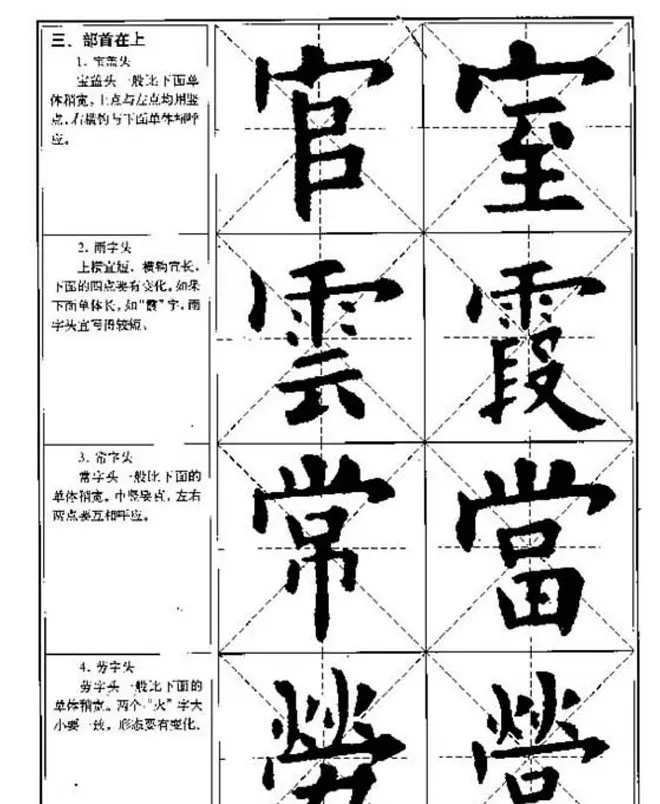 三、部首在上
1. 宝盖头
宝盖头一般比下面单
体稍宽，上点与左点均用竖
点，右横钩与下面单体相呼
应。
官 室
2. 雨字头
上横宜短、横钩宜长，
下面的四点要有变化。如果
下面单体长，如“霞”字，雨
字头宜写得较短。
雲 霞
3. 常字头
常字头一般比下面的
单体稍宽。中竖要点，左右
两点要互相呼应。
常 當
4. 劳字头
劳字头一般比下面的
单体稍宽。两个“火”字大
小要一致，形态要有变化、
勞 營